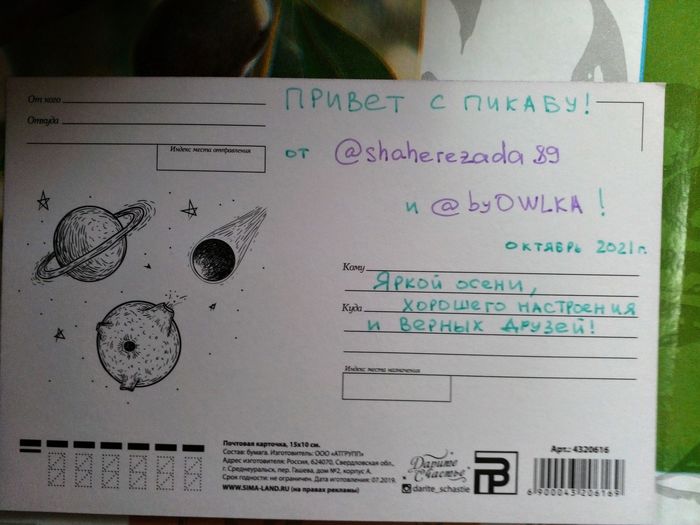 От кого
Откуда
Индекс места отправления
ПРИВЕТ С ПИКАБУ!
от @shaherezada89
и @byOWLKA!
октябрь 2021г.
Кому
Яркой осени,
Куда хорошего настроения
и верных друзей!
Индекс места назначения
Почтовая карточка, 15х10 см.
Состав: бумага. Изготовитель: ООО «АТГРУПП»
Адрес изготовителя: Россия, 624070, Свердловская обл.,
г. Среднеуральск, пер. Гашева, дом №2, корпус А.
Срок годности: не ограничен. Дата изготовления: 07.2019.
WWW.SIMA-LAND.RU (на правах рекламы)
Дарите Счастье
darite_schastie
Арт.: 4320616
6 900043 206169